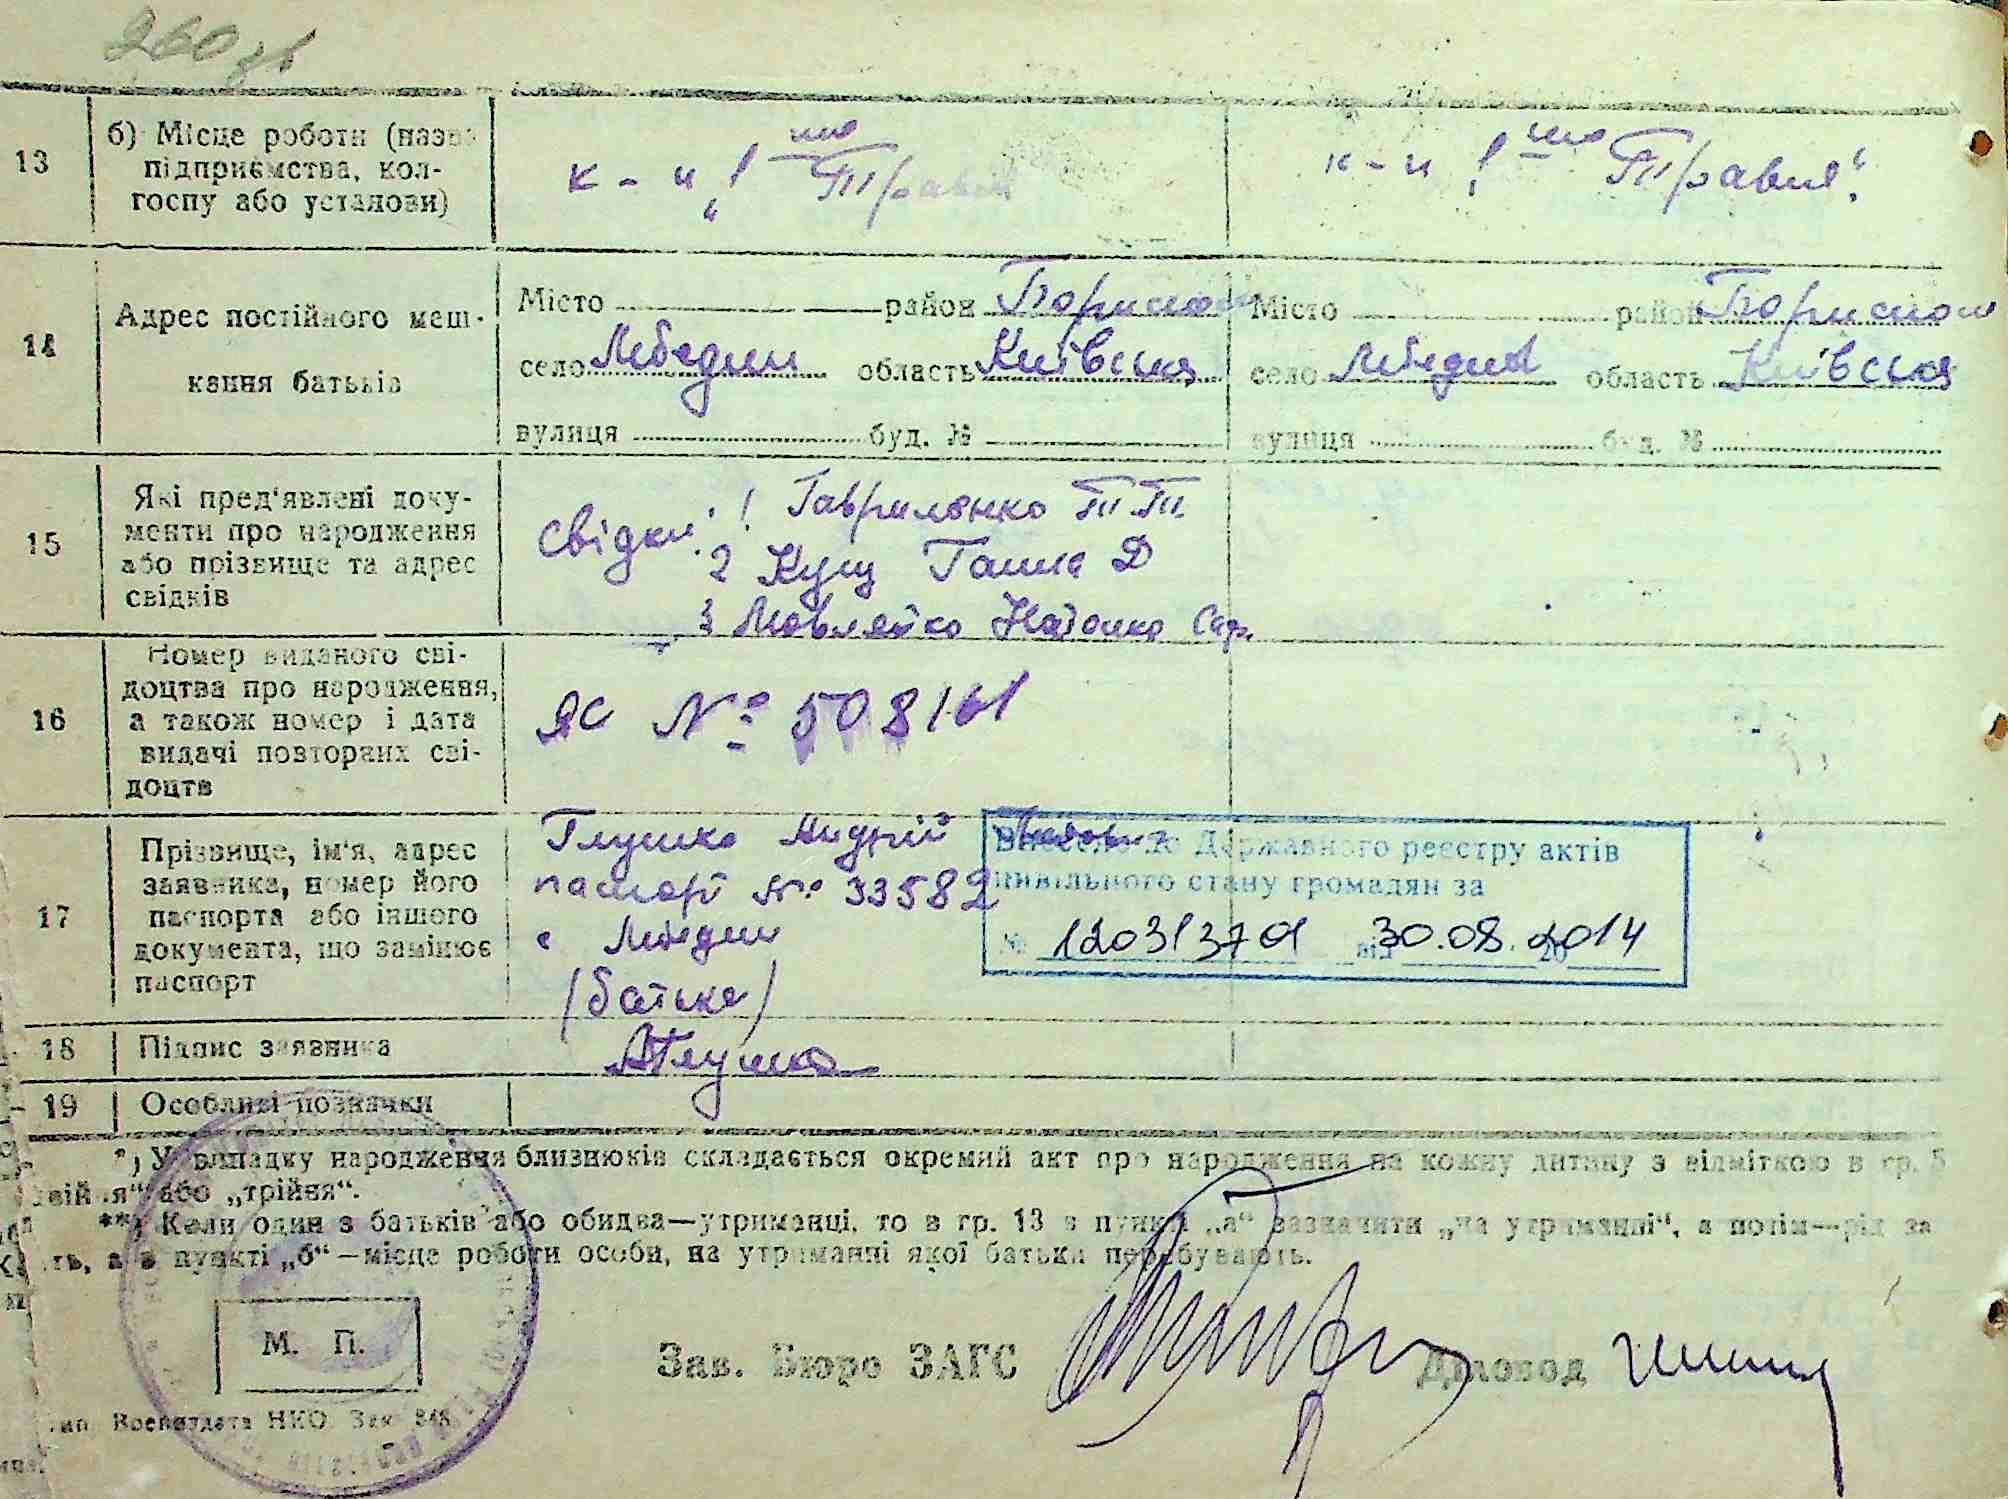 260 зв
13
б) Місце роботи (назва
підприємства, кол-
госпу або установи)
к-п „1 шо Травня
к-п „1 шо Травня“
14
Адрес постійного меш-
кання батьків
Місто район Бориспол
село Лебедин область Київська
вулиця буд. №
Місто район Бориспол
село Лебедин область Київська
вулиця буд. №
15
Які пред'явлені доку-
менти про народження
або прізвище та адрес
свідків
Свідки: 1 Гавриленко Т Т
2 Кущ Ганна Д
3 Мовляйко
16
Номер виданого сві-
доцтва про народження,
а також номер і дата
видачі повторних сві-
доцтв
ЯС № 508161
17
Прізвище, ім'я, адрес
заявника, номер його
паспорта або іншого
документа, що замінює
паспорт
Глушко Андрій
паспорт № 33582
с Лебедин
(батько)
Внесено до Державного реєстру актів
цивільного стану громадян за
№ 120313701 від 30.08.2014
18
Підпис заявника
АГлушко
19
Особливі позначки
*) У випадку народження близнюків складається окремий акт про народження на кожну дитину з відміткою в гр. 5
„двійня“ або „трійня“.
**) Коли один з батьків або обидва—утриманці, то в гр. 13 в пункті „а“ зазначити „на утриманні“, а потім—рід за
а в пункті „б“—місце роботи особи, на утриманні якої батьки перебувають.
М. П.
Зав. Бюро ЗАГС
Діловод
Тип. Воениздата НКО. Зак. 848